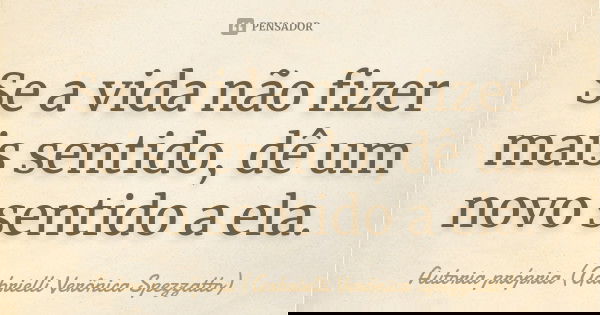 PENSADOR
Se a vida não fizer
mais sentido, dê um
novo sentido a ela.
Autoria própria (Gabrielli Verônica Spezzatto)